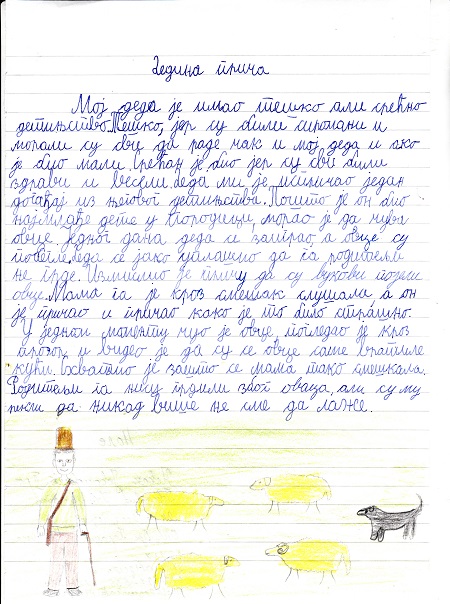 Дедина прича
Мој деда је имао тешко али срећно
детињство. Тешко, јер су били сиромани и
морали су сви да раде чак и мој деда и ако
је био мали. Срећан је био јер су сви били
здрави и весели. Деда ми је испричао један
догађај из његовог детињства. Пошто је он био
најмлађе дете у породици, морао је да чува
овце. Једног дана деда се заиграо, а овце су
побегле. Деда се јако уплашио да га родитељи
не грде. Измислио је причу да су вукови појели
овце. Мама га је кроз смешак слушала а он
је причао и причао како је то било страшно.
У једном моменту чуо је овце, погледао је кроз
прозор и видео је да су се овце саме вратиле
кући. Схватио је зашто се мама тако смешкала.
Родитељи га нису грдили због оваца, али су му
рекли да никад више не сме да лаже.